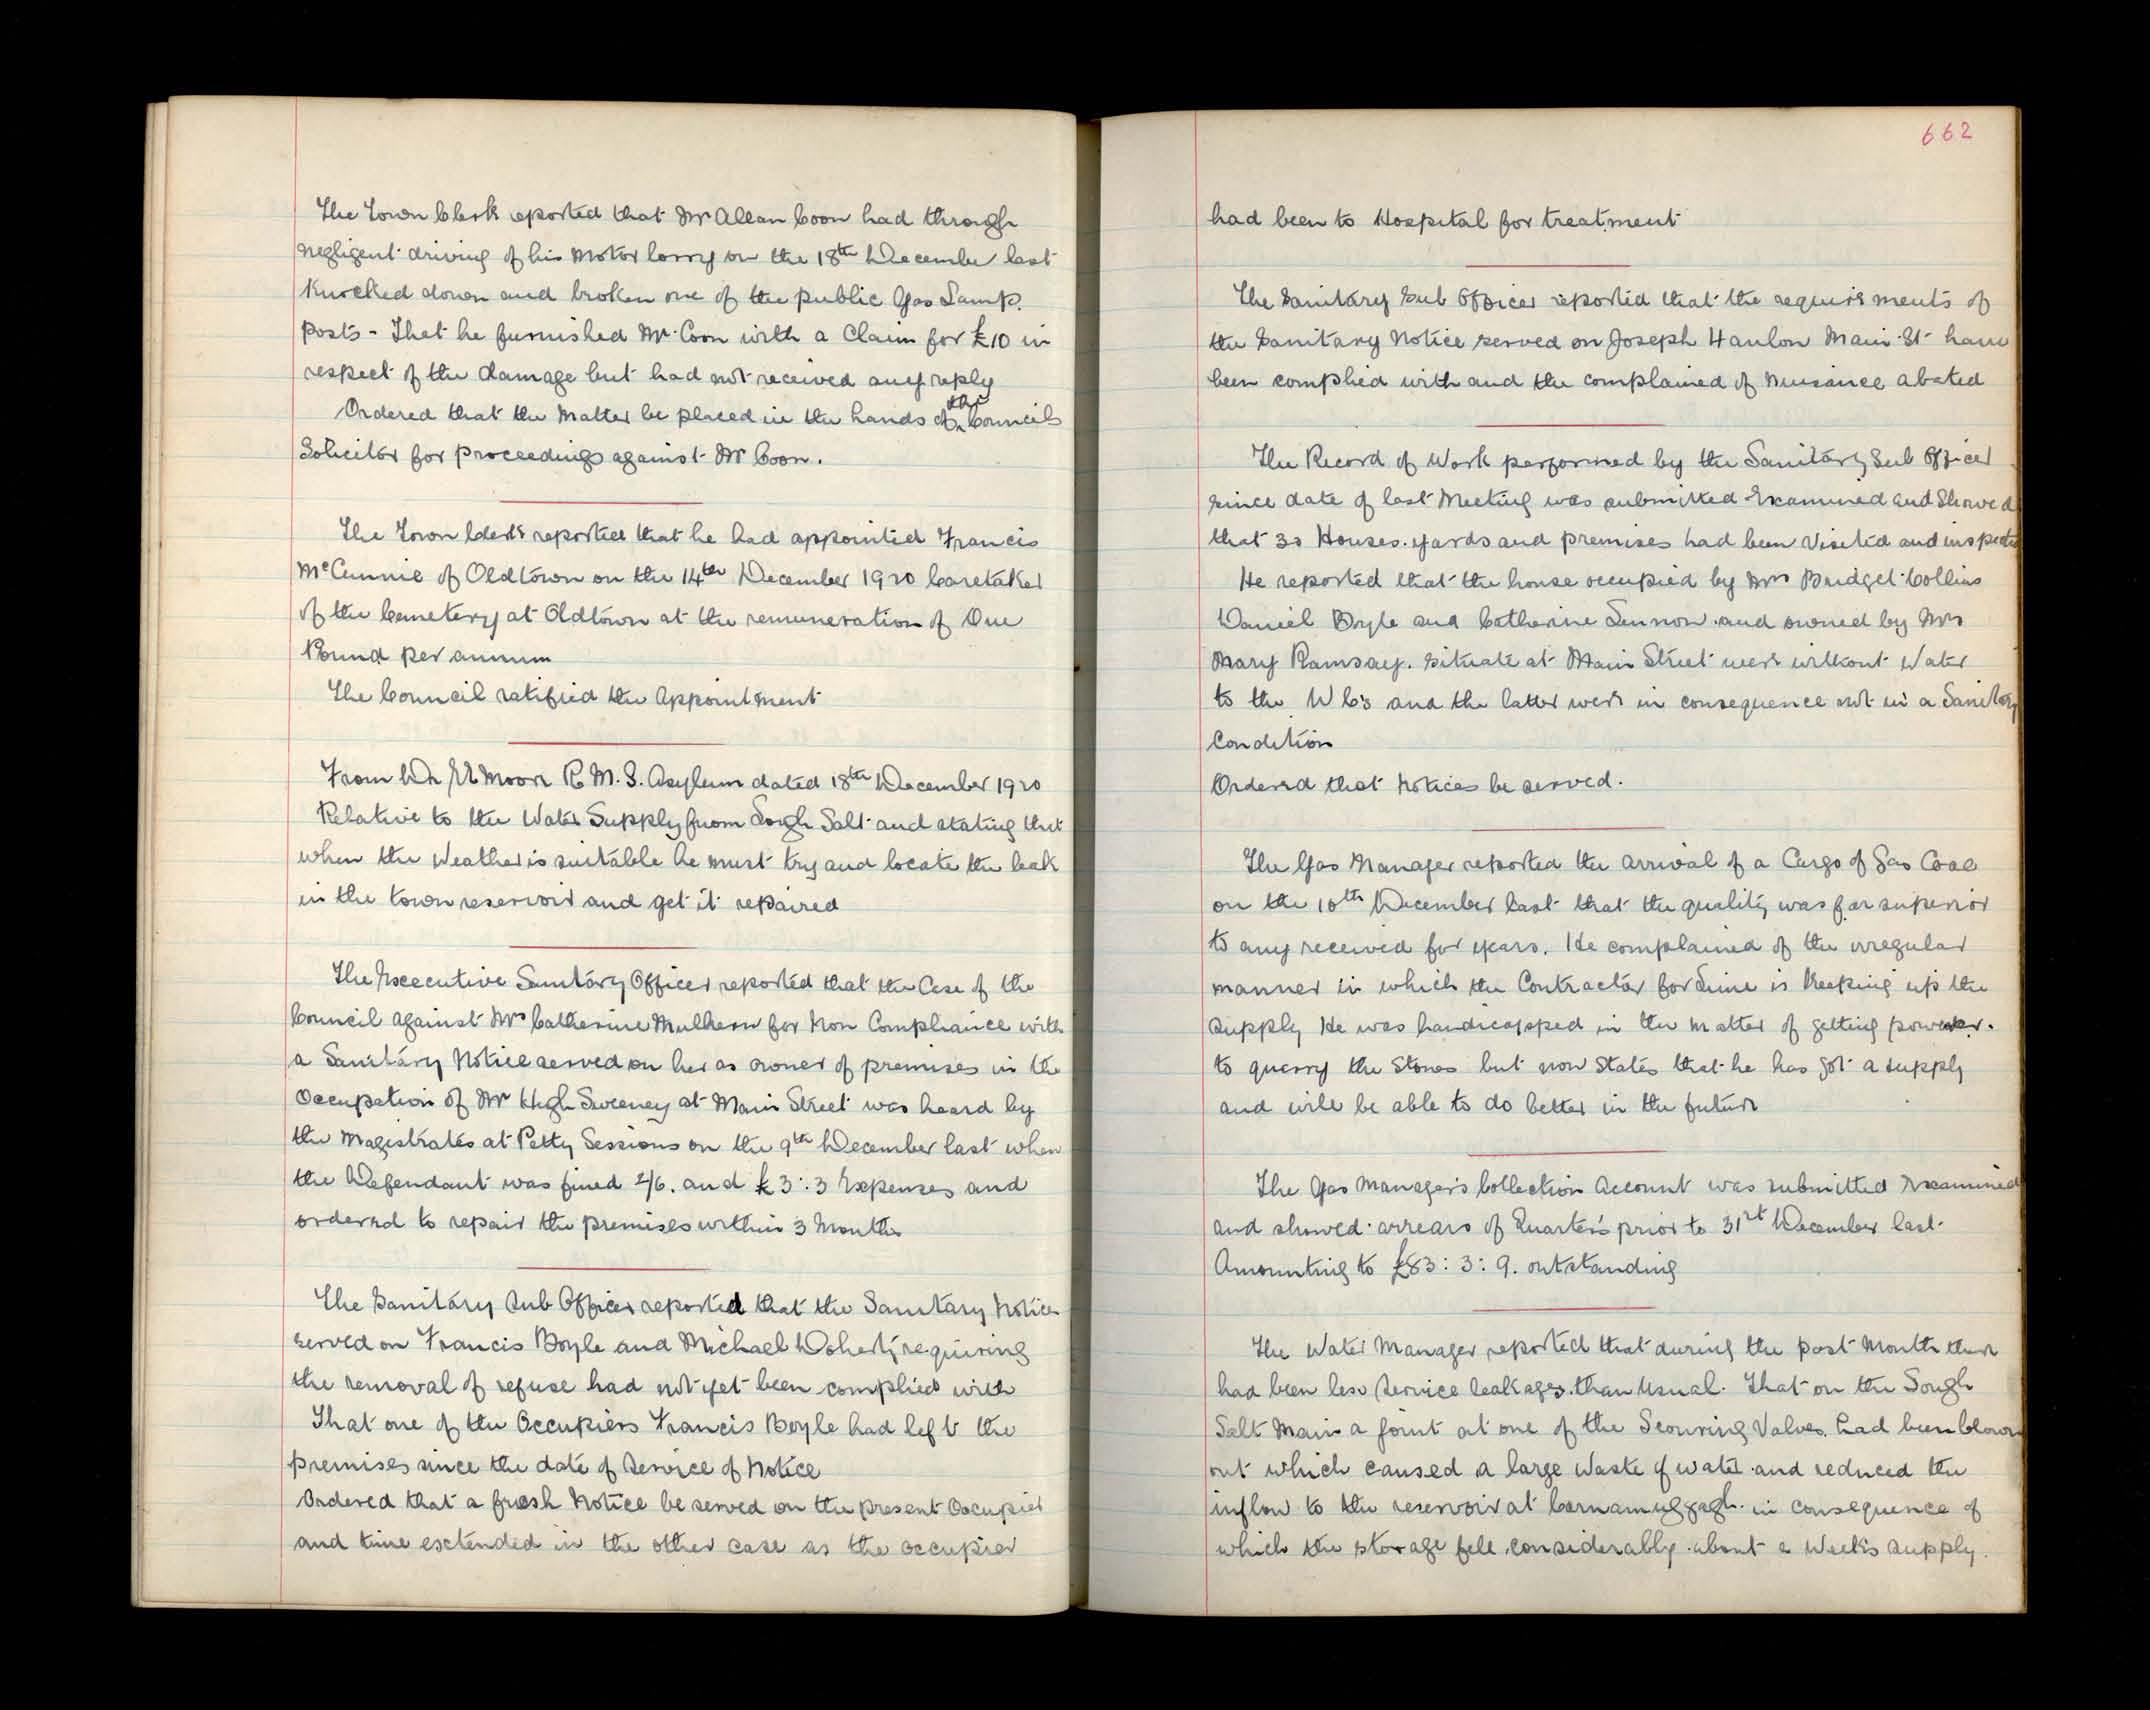 The Town Clerk reported that Mr Allan Coon had through
negligent driving of his Motor lorry on the 18th December last
knocked down and broken one of the public Gas Lamp.
posts - That he furnished Mr Coon with a Claim for £10 in
respect of the damage but had not received any reply
Ordered that the Matter be placed in the hands of the Councils
Solicitor for proceedings against Mr Coon.
The Town Clerk reported that he had appointed Francis
of Oldtown on the 14th December 1920 Caretaker
of the Cemetery at Oldtown at the remuneration of One
Pound per annum
The Council ratified the Appointment
From Dr Moore R. M. S. Asylum dated 18th December 1920
Relative to the Water Supply from Lough Salt and stating that
when the Weather is suitable he must try and locate the leak
in the town reservoir and get it repaired
The Executive Sanitary Officer reported that the Case of the
Council against Mrs Catherine Mulhern for Non Compliance with
a Sanitary Notice served on her as owner of premises in the
Occupation of Mr Hugh Sweeney at Main Street was heard by
the Magistrates at Petty Sessions on the 9th December last when
the Defendant was fined 2/6. and £3:3 Expenses and
ordered to repair the premises within 3 Months
The Sanitary Sub Officer reported that the Sanitary Notices
served on Francis Boyle and Michael Doherty requiring
the removal of refuse had not yet been complied with
That one of the Occupiers Francis Boyle had left the
premises since the date of Service of Notice
Ordered that a fresh Notice be served on the present Occupier
and time extended in the other case as the occupier
662
had been to Hospital for treatment
The Sanitary Sub Officer reported that the requirements of
the Sanitary Notice served on Joseph Hanlon Main St have
been complied with and the complained of Nuisance abated
The Record of Work performed by the Sanitary Sub Officer
since date of last Meeting was submitted Examined and Showed
that 30 Houses. yards and premises had been Visited and inspected
He reported that the house occupied by Mrs Bridget Collins
Daniel Boyle and Catherine Lennon and owned by Mrs
Mary Ramsay. situate at Main Street were without Water
to the W C's and the latter were in consequence not in a Sanitary
Condition
Ordered that Notices be served.
The Gas Manager reported the arrival of a Cargo of Gas Coal
on the 10th December last that the quality was far superior
to any received for years. He complained of the irregular
manner in which the Contractor for Lime is keeping up the
supply He was handicapped in the matter of getting powder.
to quarry the Stones but now States that he has got a supply
and will be able to do better in the future
The Gas Manager's Collection Account was submitted Examined
and showed arrears of Quarters prior to 31st December last
Amounting to £83:3:9. outstanding
The Water Manager reported that during the past Month there
had been less Service leakages than Usual. That on the Lough
Salt Main a joint at one of the Scouring Valves had been blown
out which caused a large Waste of water and reduced the
inflow to the reservoir at Carnamuggagh in consequence of
which the storage fell considerably about a Week's supply.